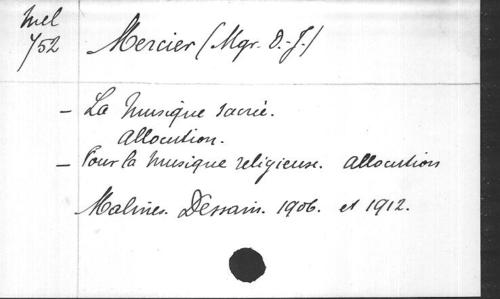 Mel
752
Mercier (Mgr. D.-J.)
- La Musique sacrée.
Allocution.
- Pour la Musique religieuse. Allocution
Malines. Dessain. 1906. et 1912.